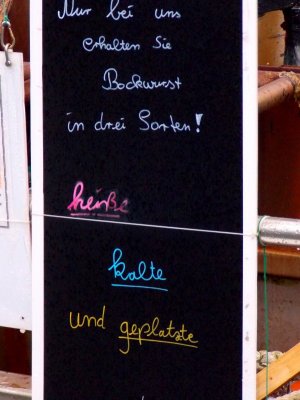 Nur bei uns
erhalten Sie
Bockwurst
in drei Sorten!
heiße
kalte
und geplatzte